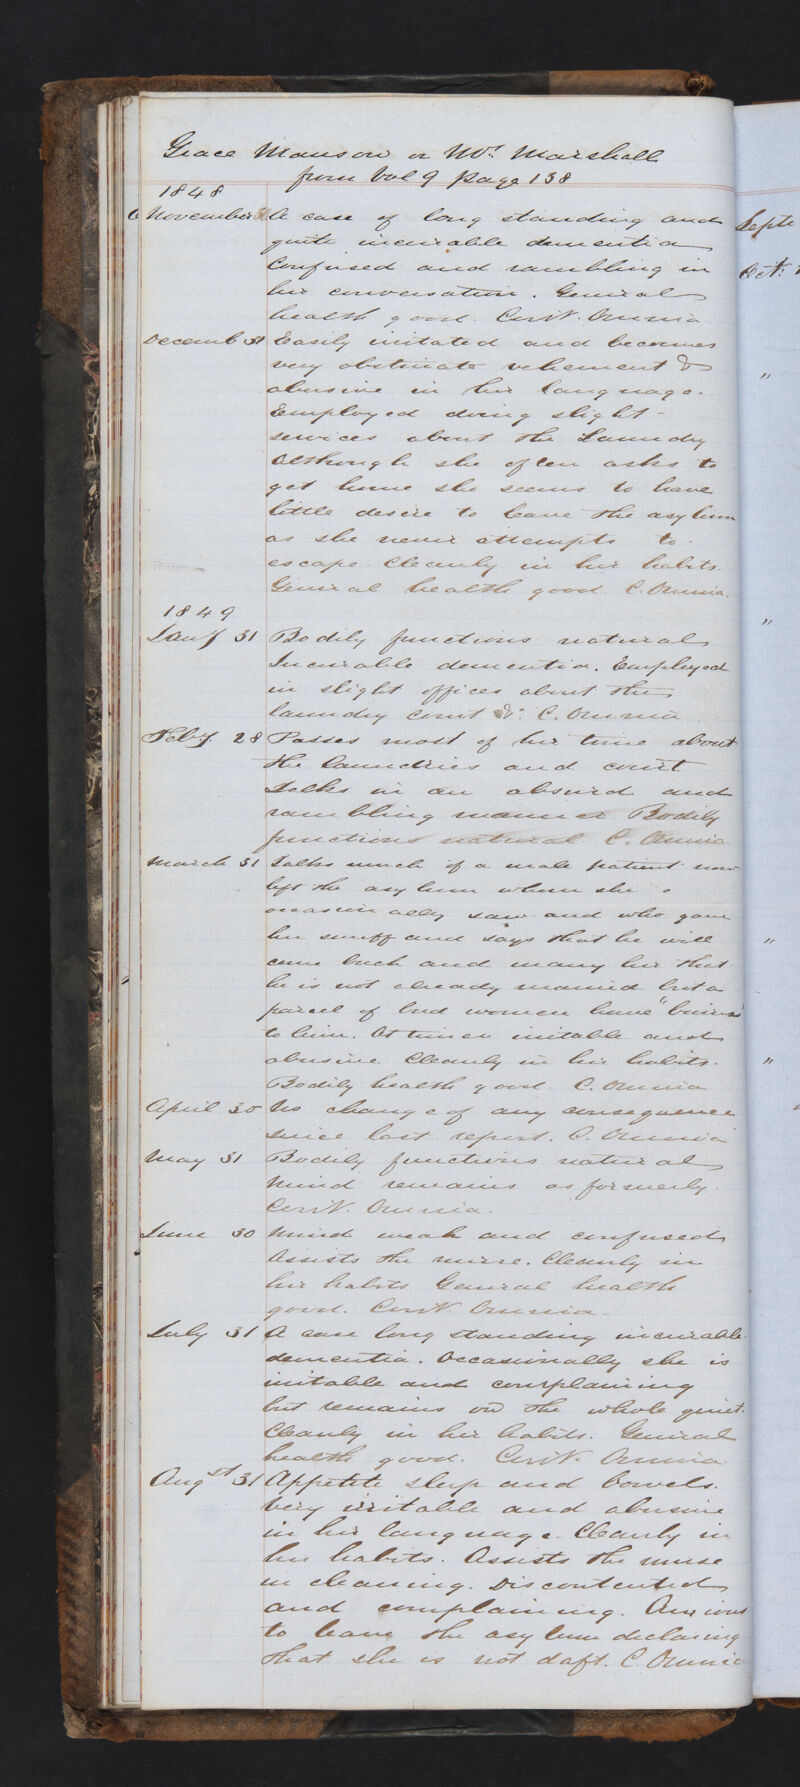 Grace Manson or Mrs Marshall
from Vol 9 page 138
1848
November 30 A case of long standing and
quite incurable dementia
Confused and rambling in
her conversation. General
health good. Contr. Omnia
Decemb 31 Easily irritated and becomes
very obstinate vehement &
abusive in her language.
Employed doing slight
services about the Laundry
Although she often asks to
get home she seems to have
little desire to leave the asylum
as she never attempts to
escape. Cleanly in her habits.
General health good. C. Omnia.
1849
Jany 31 Bodily functions natural
Incurable dementia. Employed
in slight offices about the
laundry court &c. C. Omnia
Feby. 28 Passes most of her time about
the laundries and court
Talks in an absurd and
rambling manner. Bodily
functions natural. C. Omnia
March 31 Talks much of a male patient now
left the asylum whom she
occasionally saw and who gave
her snuff and says that he will
come back and marry her that
he is not already married but a
parcel of bad women have
to him. At times irritable and
abusive. Cleanly in her habits.
Bodily health good. C. Omnia
April 30 No change of any consequence
since last report. C. Omnia
May 31 Bodily functions natural
mind remains as formerly.
Contr. Omnia.
June 30 Mind weak and confused
Assists the nurse. Cleanly in
her habits General health
good. Contr. Omnia
July 31 A case long standing incurable
dementia. Occasionally she is
irritable and complaining
but remains on the whole quiet.
Cleanly in her habits. General
health good. Contr. Omnia
Augst 31 Appetite sleep and bowels.
Very irritable and abusive
in her language. Cleanly in
her habits. Assists the nurse
in cleaning. Discontented
and complaining. Anxious
to leave the asylum declaring
that she is not daft. C. Omnia
Septr
Oct:
"
"
"
"